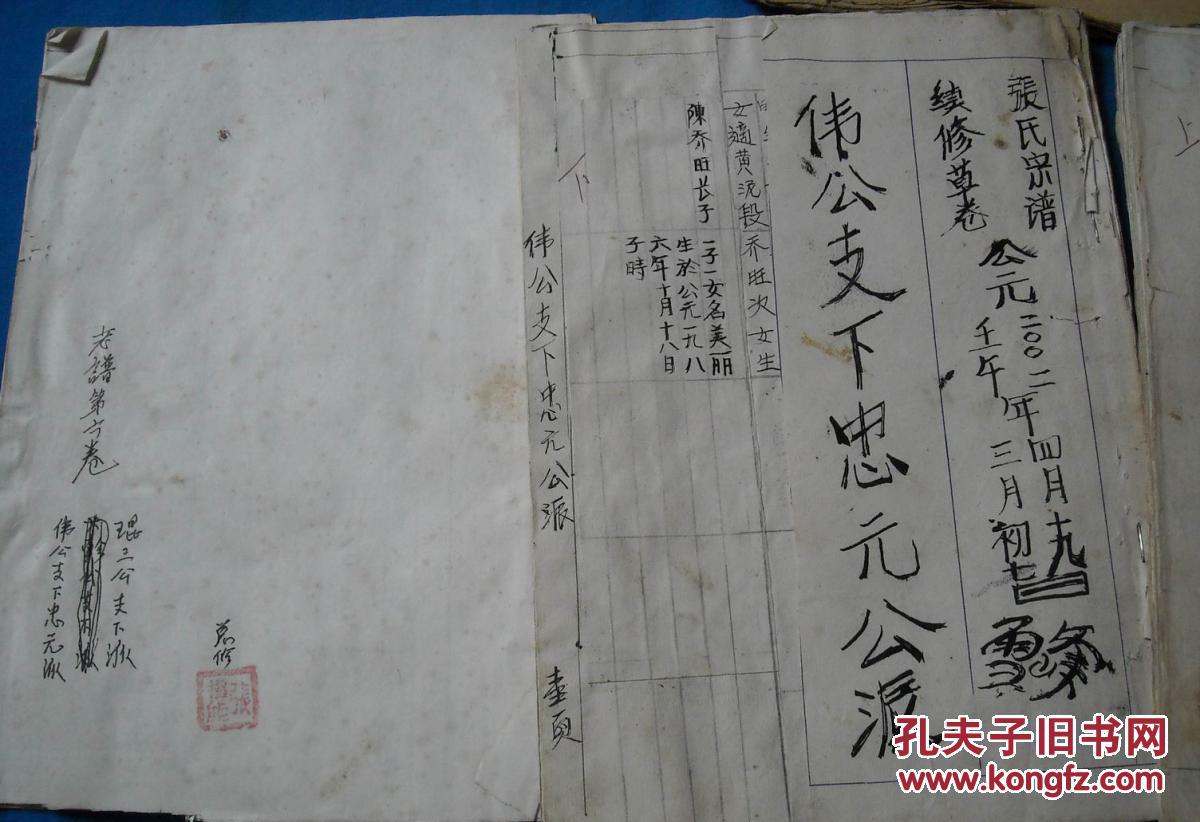 張氏宗谱
续修草卷
公元二00二年四月十九
壬午年三月初七
伟公支下忠元公派
女適黄泥段乔旺次女生
陳乔旺长子
一子一女名美丽
生於公元一九八
六年十月十八日
子時
下
伟公支下忠元公派
壶頁
老譜第六卷
琨三公支下派
伟公支下忠元派
上
孔夫子旧书网
www.kongfz.com